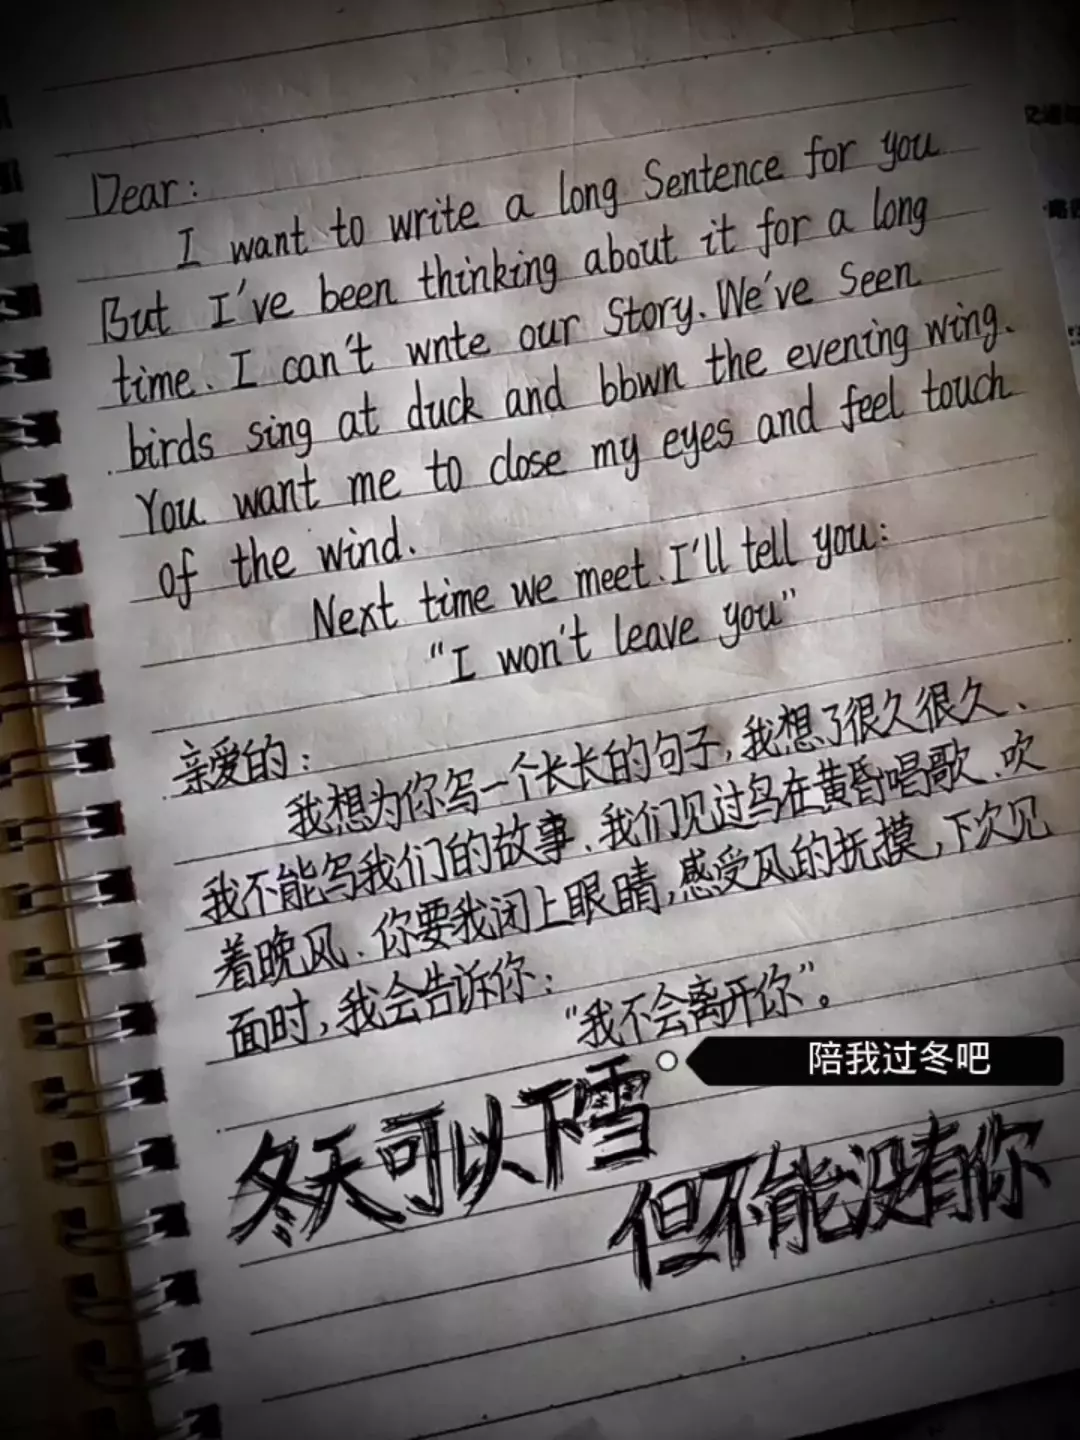 Dear:
I want to write a long Sentence for you
But I've been thinking about it for a long
time. I can't wnte our Story. We've Seen
birds sing at duck and bbwn the evening wing.
You want me to close my eyes and feel touch
of the wind.
Next time we meet. I'll tell you:
"I won't leave you"
亲爱的:
我想为你写一个长长的句子,我想了很久很久、
我不能写我们的故事、我们见过鸟在黄昏唱歌、吹
着晚风、你要我闭上眼睛,感受风的抚摸,下次见
面时,我会告诉你:
"我不会离开你"。
陪我过冬吧
冬天可以下雪
但不能没有你